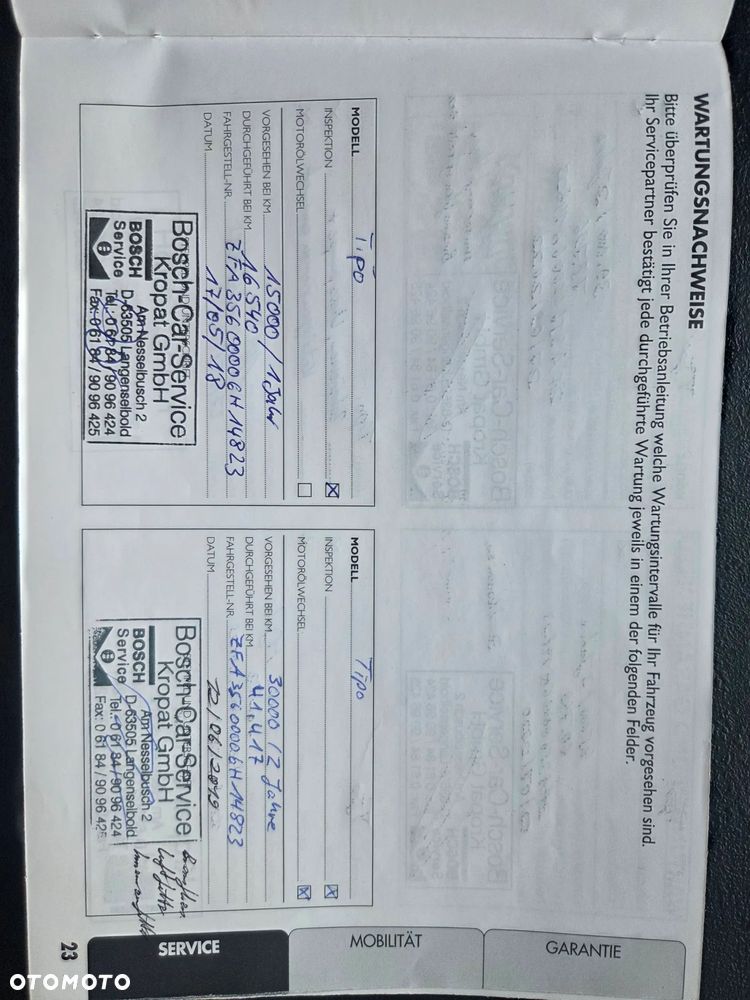 WARTUNGSNACHWEISE
Bitte überprüfen Sie in Ihrer Betriebsanleitung welche Wartungsintervalle für Ihr Fahrzeug vorgesehen sind.
Ihr Servicepartner bestätigt jede durchgeführte Wartung jeweils in einem der folgenden Felder.
MODELL Tipo
INSPEKTION
MOTORÖLWECHSEL
VORGESEHEN BEI KM 15000 / 1 Jahr
DURCHGEFÜHRT BEI KM 16 540
FAHRGESTELL-NR. ZFA3560000 6H14823
DATUM 17/05/18
Bosch-Car-Service
Kropat GmbH
BOSCH
Service
Am Nesselbusch 2
D-63505 Langenselbold
Tel.: 0 61 84 / 90 96 424
Fax: 0 61 84 / 90 96 425
MODELL Tipo
INSPEKTION
MOTORÖLWECHSEL
VORGESEHEN BEI KM 30000 / 2 Jahre
DURCHGEFÜHRT BEI KM 41.417
FAHRGESTELL-NR. ZFA3560000.6H14823
DATUM 12/06/2019
Bosch-Car-Service
Kropat GmbH
BOSCH
Service
Am Nesselbusch 2
D-63505 Langenselbold
Tel.: 0 61 84 / 90 96 424
Fax: 0 61 84 / 90 96 425
GARANTIE
MOBILITÄT
SERVICE
23
OTOMOTO